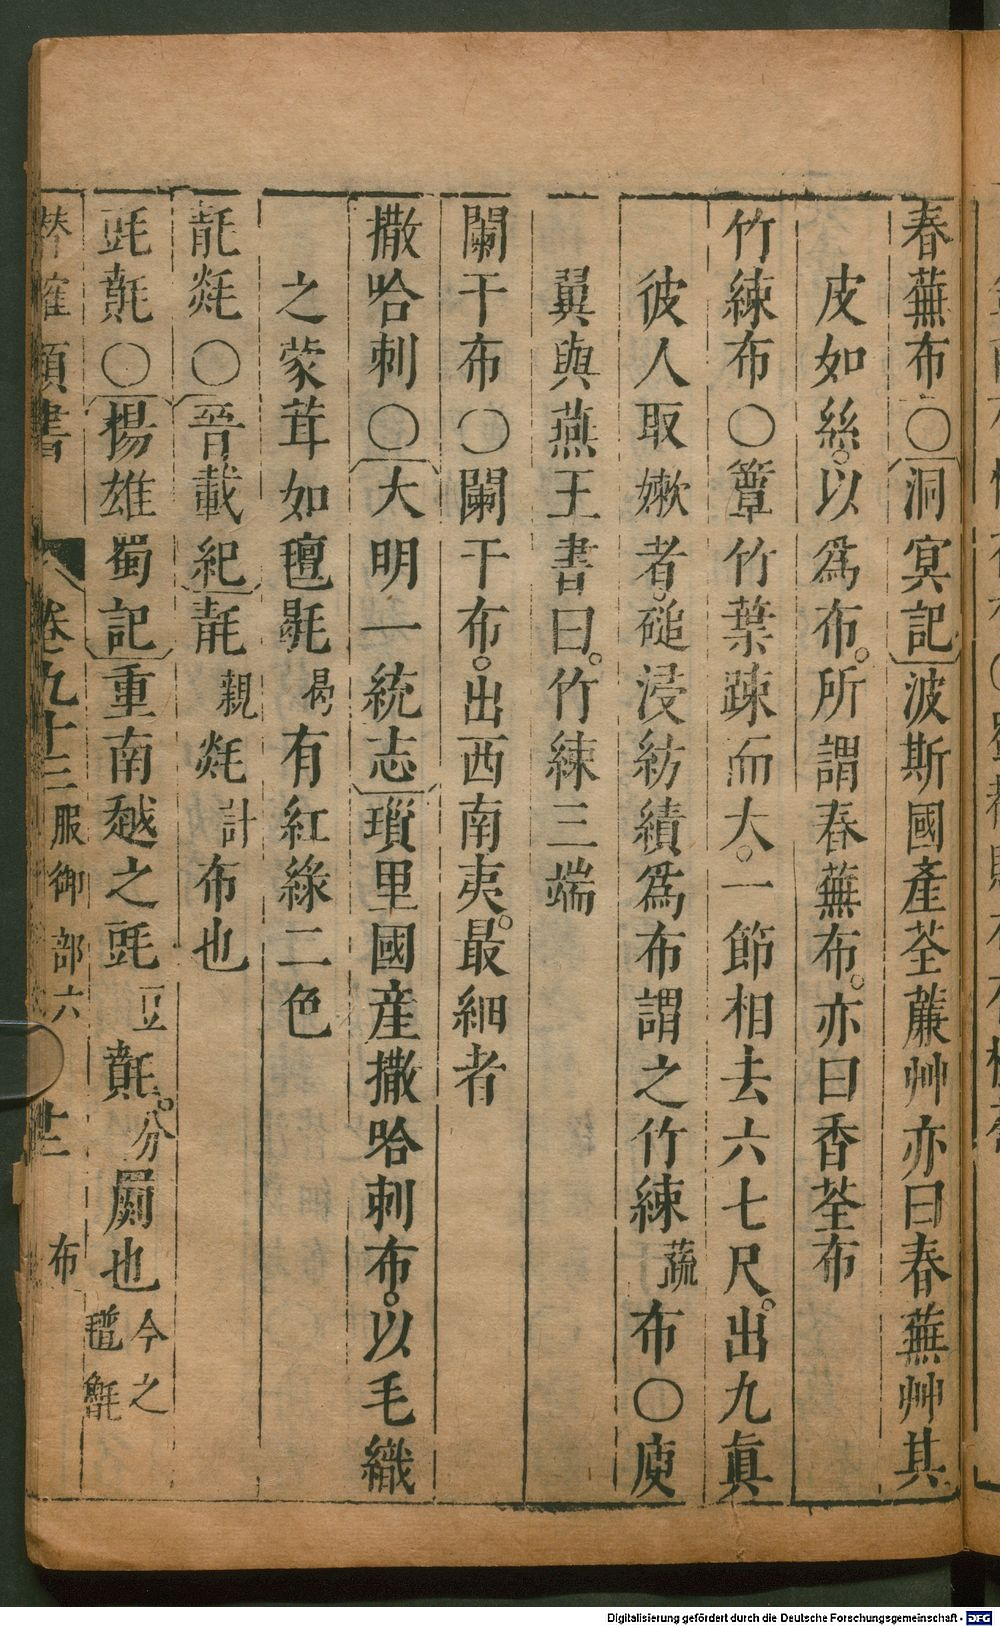 春蕪布○洞冥記波斯國產荃蘼艸亦曰春蕪艸其
皮如絲。以爲布。所謂春蕪布。亦曰香荃布
竹練布○簟竹葉疎而大。一節相去六七尺。出九眞
彼人取嫩者。磓浸紡績爲布謂之竹練蔬布○庾
翼與燕王書曰。竹練三端
闌干布○闌干布。出西南夷。最細者
撒哈剌○大明一統志瑣里國産撒哈剌布。以毛織
之蒙茸如氊毼曷有紅綠二色
㲋○晉載紀親計布也
毲○揚雄蜀記重南越之豆。分罽也今之
卷九十三服御部六 布
Digitalisierung gefördert durch die Deutsche Forschungsgemeinschaft - DFG